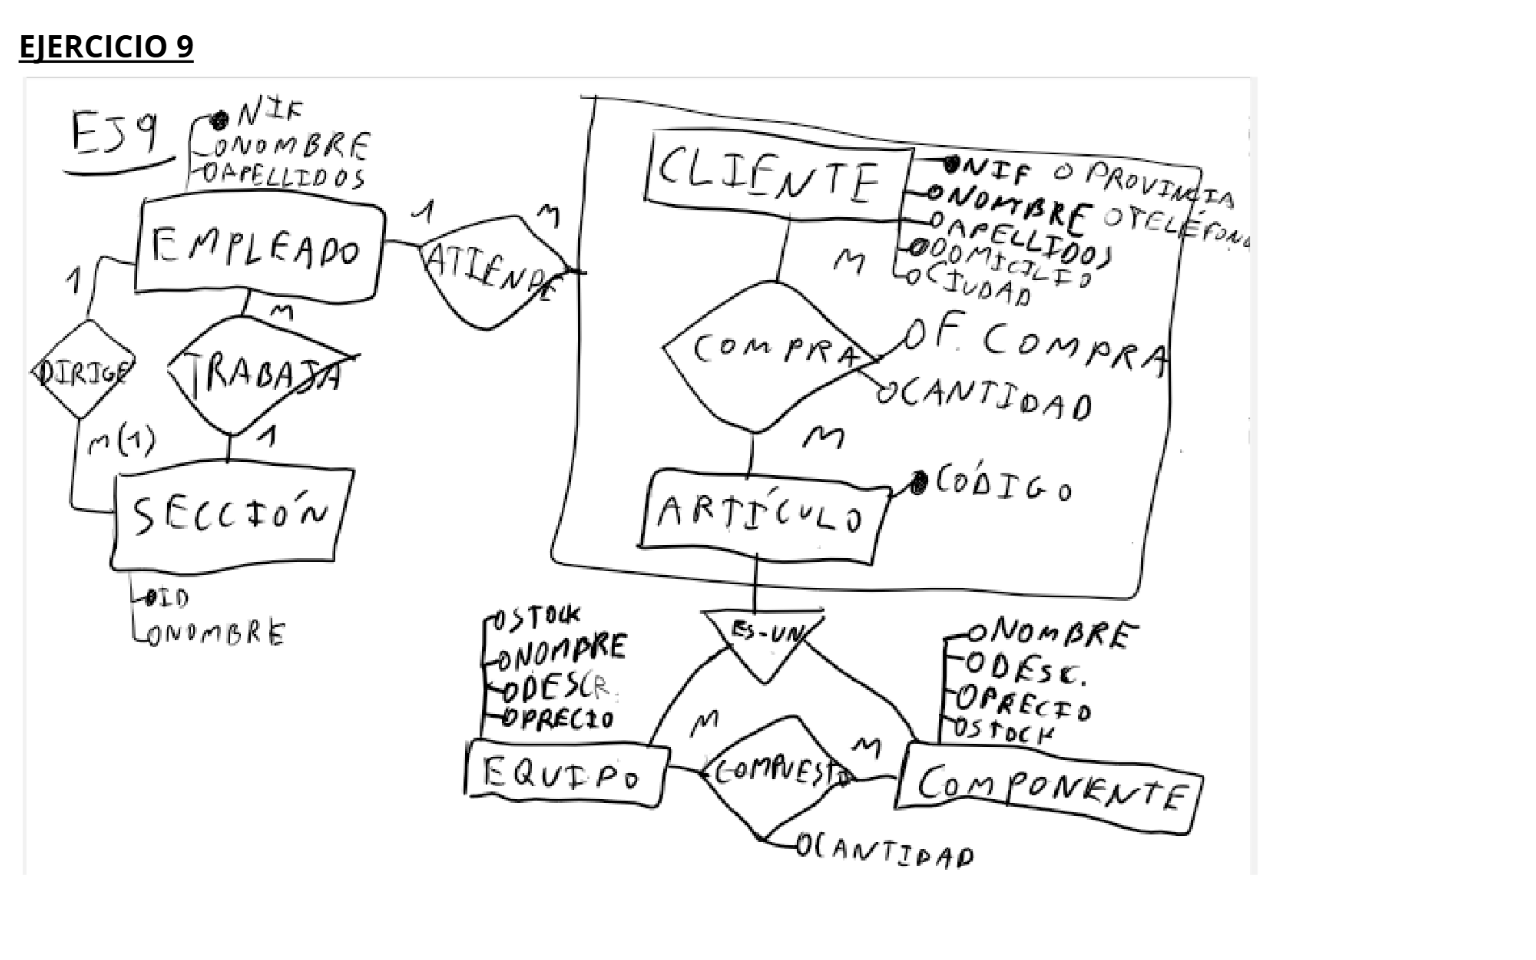 EJERCICIO 9
EJ9
NIF
NOMBRE
APELLIDOS
EMPLEADO
1
M
ATIENDE
1
DIRIGE
M(1)
M
TRABAJA
1
SECCIÓN
ID
NOMBRE
CLIENTE
NIF
PROVINCIA
NOMBRE
TELÉFONO
APELLIDOS
DOMICILIO
CIUDAD
M
COMPRA
F. COMPRA
CANTIDAD
M
ARTÍCULO
CÓDIGO
ES-UN
STOCK
NOMBRE
DESCR.
PRECIO
EQUIPO
M
COMPUESTO
M
CANTIDAD
NOMBRE
DESC.
PRECIO
STOCK
COMPONENTE